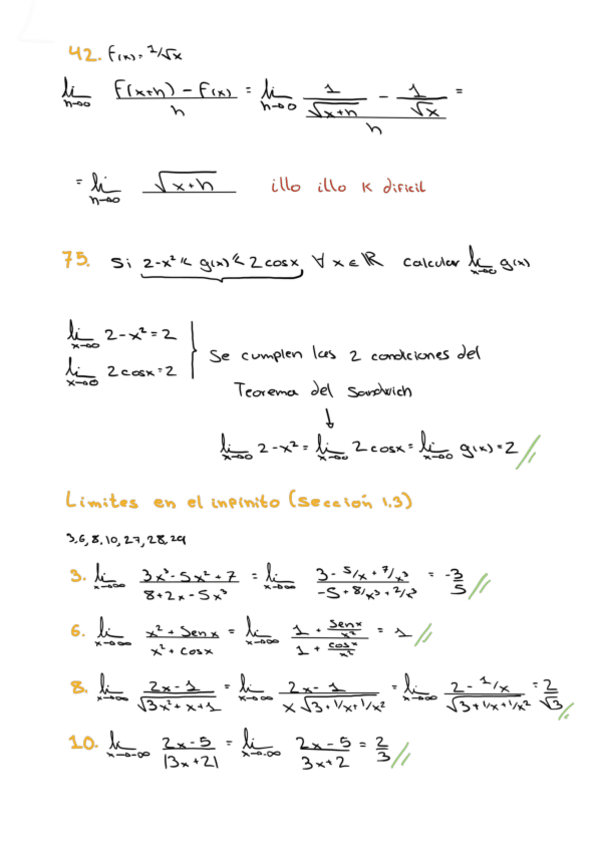 42. f(x) = 1/√x
lim h→0 (f(x+h) - f(x))/h = lim h→0 (1/√(x+h) - 1/√x)/h =
= lim h→0 √(x+h) illo illo k dificil
75. Si 2-x² ≤ g(x) ≤ 2cosx ∀ x ∈ ℝ calcular lim x→0 g(x)
lim x→0 2-x² = 2
lim x→0 2cosx = 2
Se cumplen las 2 condiciones del
Teorema del Sandwich
↓
lim x→0 2-x² = lim x→0 2cosx = lim x→0 g(x) = 2 //
Límites en el infinito (sección 1.3)
3,6,8,10,27,28,29
3. lim x→∞ (3x³-5x²+7)/(8+2x-5x³) = lim x→∞ (3 - 5/x + 7/x³)/(-5 + 8/x³ + 2/x²) = -3/5 //
6. lim x→∞ (x² + senx)/(x² + cosx) = lim x→∞ (1 + senx/x²)/(1 + cosx/x²) = 1 //
8. lim x→∞ (2x-1)/√(3x²+x+1) = lim x→∞ (2x-1)/(x√(3+1/x+1/x²)) = lim x→∞ (2-1/x)/√(3+1/x+1/x²) = 2/√3 //
10. lim x→-∞ (2x-5)/|3x+2| = lim x→-∞ (2x-5)/(3x+2) = 2/3 //